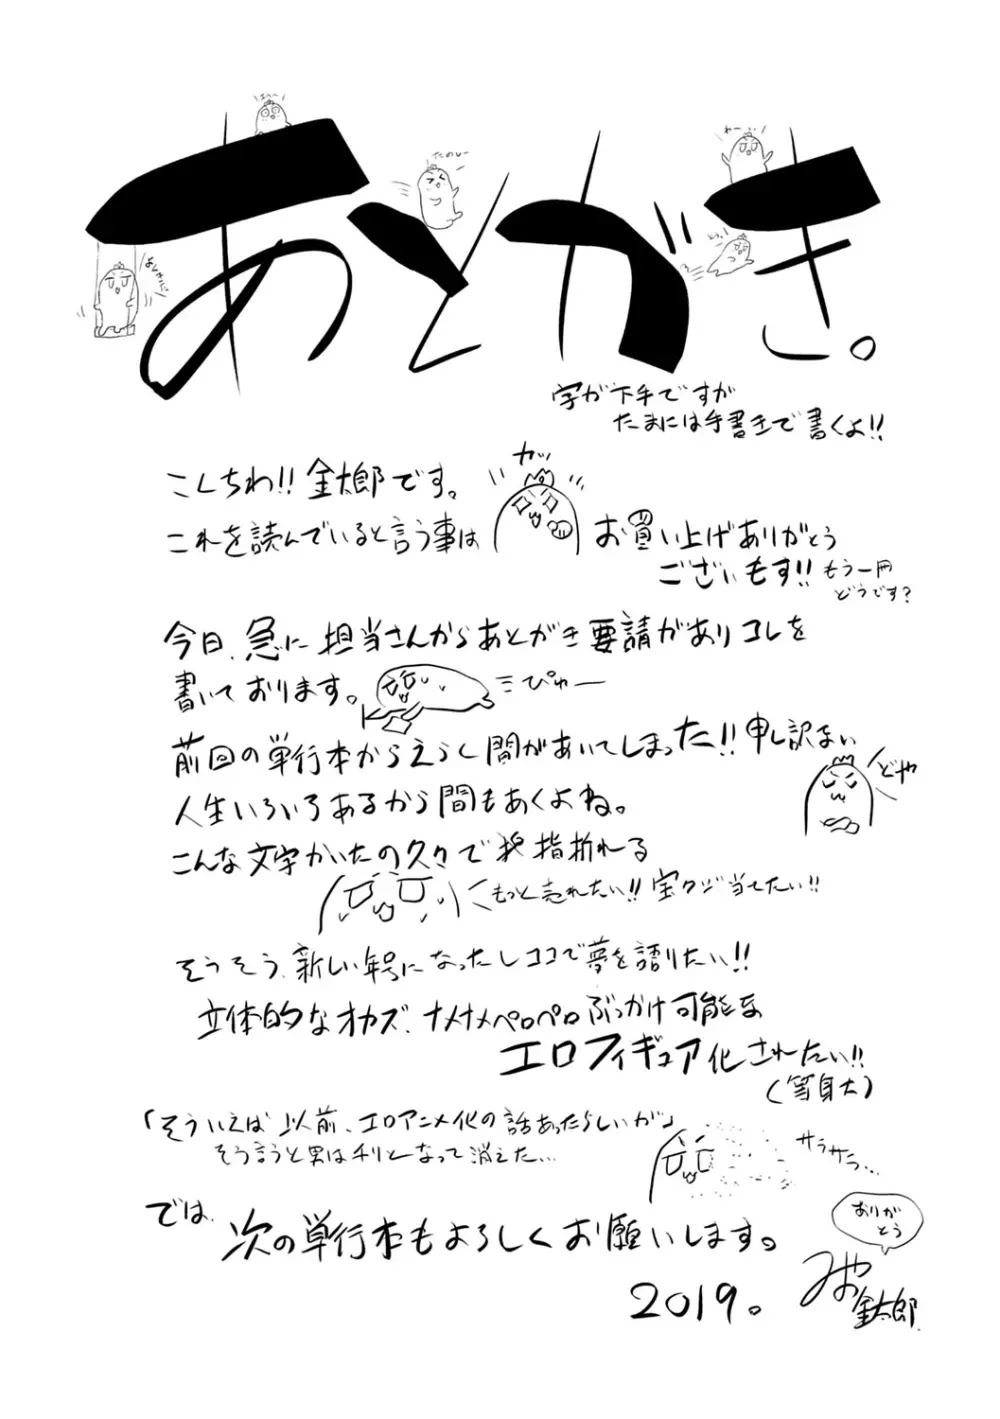 あとがき。
たのしー
わーい
字が下手ですが
たまには手書きで書くよ!!
こんちわ!! 金太郎です。
カッ
これを読んでいると言う事は
お買い上げありがとう
ございます!!
もう一冊
どうです?
今日、急に担当さんからあとがき要請がありコレを
書いております。
ぴゅー
前回の単行本からえらく間があいてしまった!! 申し訳ない
どや
人生いろいろあるから間もあくよね。
こんな文字かいたの久々で 指折れる
もっと売れたい!! 宝クジ当てたい!!
そうそう、新しい年号になったしココで夢を語りたい!!
立体的なオカズ、ナメナメペロペロぶっかけ可能な
エロフィギュア化されたい!!
(等身大)
「そういえば以前、エロアニメ化の話あったらしいが」
そう言うと男はチリとなって消えた…
サラサラ…
では、
次の単行本もよろしくお願いします。
ありが
とう
2019。
みやお
金太郎